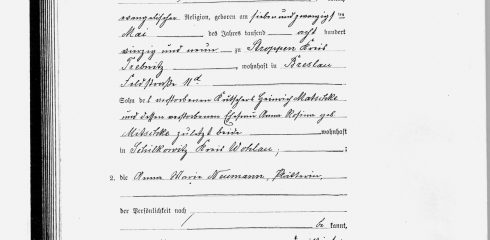 evangelischer Religion, geboren am sieben und zwanzigsten
Mai des Jahres tausend acht hundert
vierzig und neun zu Broppen Kreis
Trebnitz, wohnhaft in Breslau
Feldstraße 11d
Sohn des verstorbenen Kutschers Heinrich
und dessen verstorbenen Ehefrau Anna Rosina geb
zuletzt beide wohnhaft
in Kreis Wohlau, ;
2. die Anna Marie Neumann, Plätterin,
der Persönlichkeit nach
be kannt,